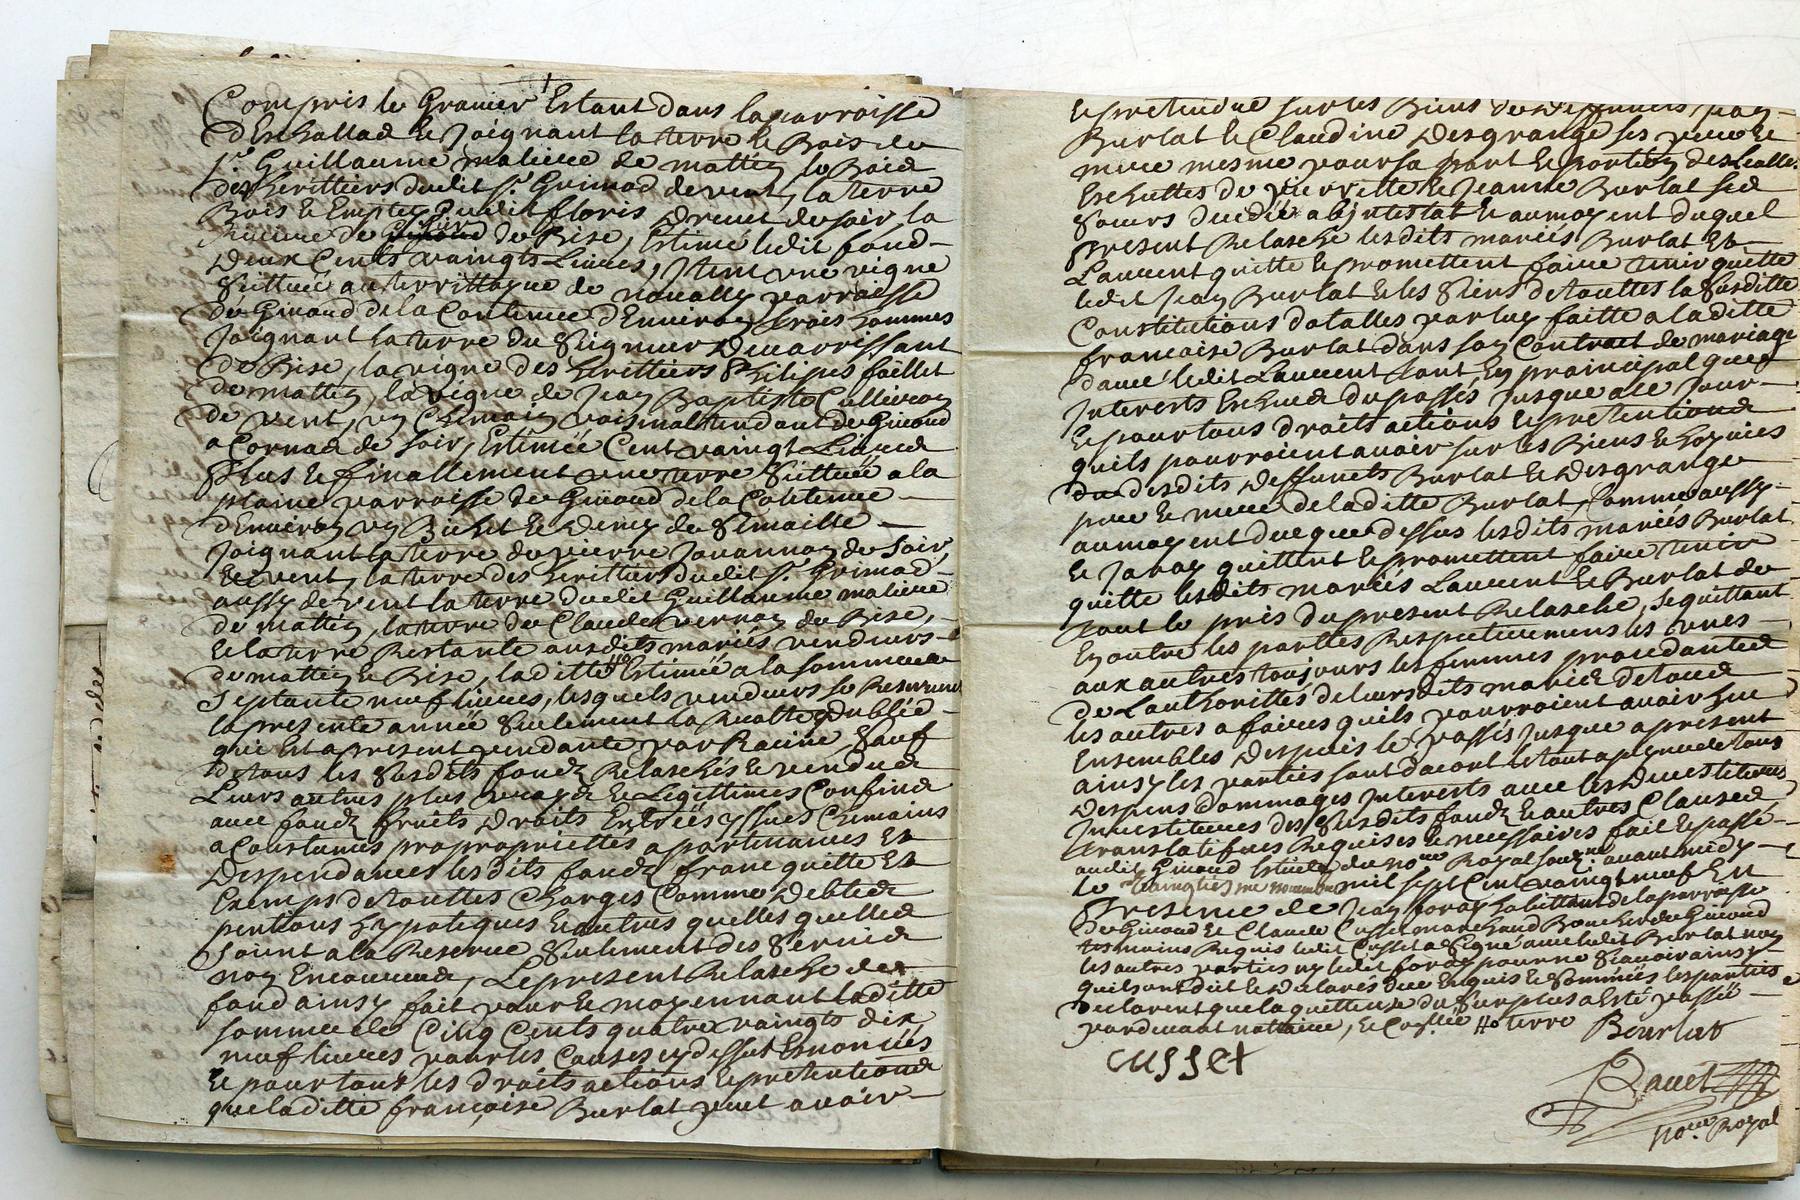 Compris le Granier Estant dans la parroisse
d'Echallad & Joignant la terre & Bois du
Sr. Guillaume matieue de mattin, le Bois
des heritiers dudit Sr. Grimod de vent, la terre
Bois & dudit floris dreuet de soir, la
de de Bise, Estimé ledit fond
deux Cents vaingts Liures, Item vne vigne
Scittuée au territtoyre de noually parroisse
de Giuord de la Contenue d'Enuiron trois hommes
Joignant la terre du Seigneur Demarressant
de Bise, la vigne des heritiers Philipes faillet
de mattin, la vigne de Jean Baptiste Culleron
de vent, vn Chemain voisinal tendant de Giuord
a Cornad de soir, Estimée Cent vaingt Liures
Plus & finallement vne terre Scittuée a la
plaine parroisse de Giuord de la Contenue
d'Enuiron vn Bichet & Demy de Semaille
Joignant la terre de pierre Jouannon de soir,
& vent, la terre des heritiers dudit Sr. Grimod
aussy de vent la terre dudit Guillaume matieue
de mattin, la terre de Claude vernay de Bise,
& la terre Restante ausdits mariés vendeurs
de mattin & Bise, laditte Estimée a la somme de
septante neuf liures, lesquels vendeurs se Reseruent
la presente année seulement la Recolte
qui Est apresent pendante par Racine, sauf
de tous les susdits fondz Relaschés & vendus
Leurs autres plus vrayes & Legittimes Confins
auec fondz fruits Droits Entrées yssues Chemains
aCoustumes propropriettes apartenances Et
Despendances lesdits fondz franc quitte Et
Exemps de touttes Charges Comme Debtes
pentions hypotiques & autres quelles quelles
soient a la Reserue seulement des seruis
non Encourus, Le present Relasche de
fond ainsy fait pour & moyennant laditte
somme de Cinq Cents quatre vaingts dix
neuf liures pour les Causes cy dessus Enoncés
& pour tous les droits actions & pretentions
que laditte françoise Burlat peut avoir
& pretendre sur les Biens des deffuncts Jean
Burlat & Claudine Desgrange ses pere &
mere mesme pour sa part & portion de
Escheuttes de pierrette & Jeanne Burlat ses
sœurs decedé abintestat & au moyent duquel
Present Relasche lesdits mariés Burlat Et
Laurent quitte & promettent faire tenir quitte
ledit Jean Burlat & les siens de touttes la susditte
Constitutions dotalles par luy faitte a laditte
françoise Burlat dans son Contract de mariage
dauec ledit Laurent tant En principal que
Interests Escheus du passés Jusque a ce Jour
& pour tous droits actions & pretentions
quils pourroient auoir sur les Biens & hoyries
desdits Deffuncts Burlat & Desgrange
pere & mere de laditte Burlat, Comme aussy
au moyent duque dessus lesdits mariés Burlat
& quittent & promettent faire tenir
quitte lesdits mariés Laurent & Burlat de
tout le pris du present Relasche, se quittant
En outre les parties Respectiuement les vnes
aux autres toujours les femmes procedantes
de Lauthorittés de leurs dits maries de tous
les autres afaires quils pourroient auoir Eue
Ensembles Despuis le passés Jusque a present
ainsy les parties sont dacort le tout a peyne de tous
Despens dommages Interests auec les Deuestitures
Inuestitures des susdits fondz & autres Clauses
translatifues Requises & necessaires fait & passé
audit Giuord Estude du nore Royal auant midy
le mil sept Cent vaingt neuf En
Presence de Jean foray habittant de la parroisse
de Giuord & Claude Cusset marchand Boucher de Giuord
tesmoins Requis ledit Cusset a signé auec ledit Burlat non
les autres parties ny ledit foray pour ne scauoir ainsy
quils ont dit & declarés Due Enquis & sommés les parties
Declarent que la quittence du surplus a Esté passée
pardeuant nottaire, & terre
Bourlat
cusset
nore Royal